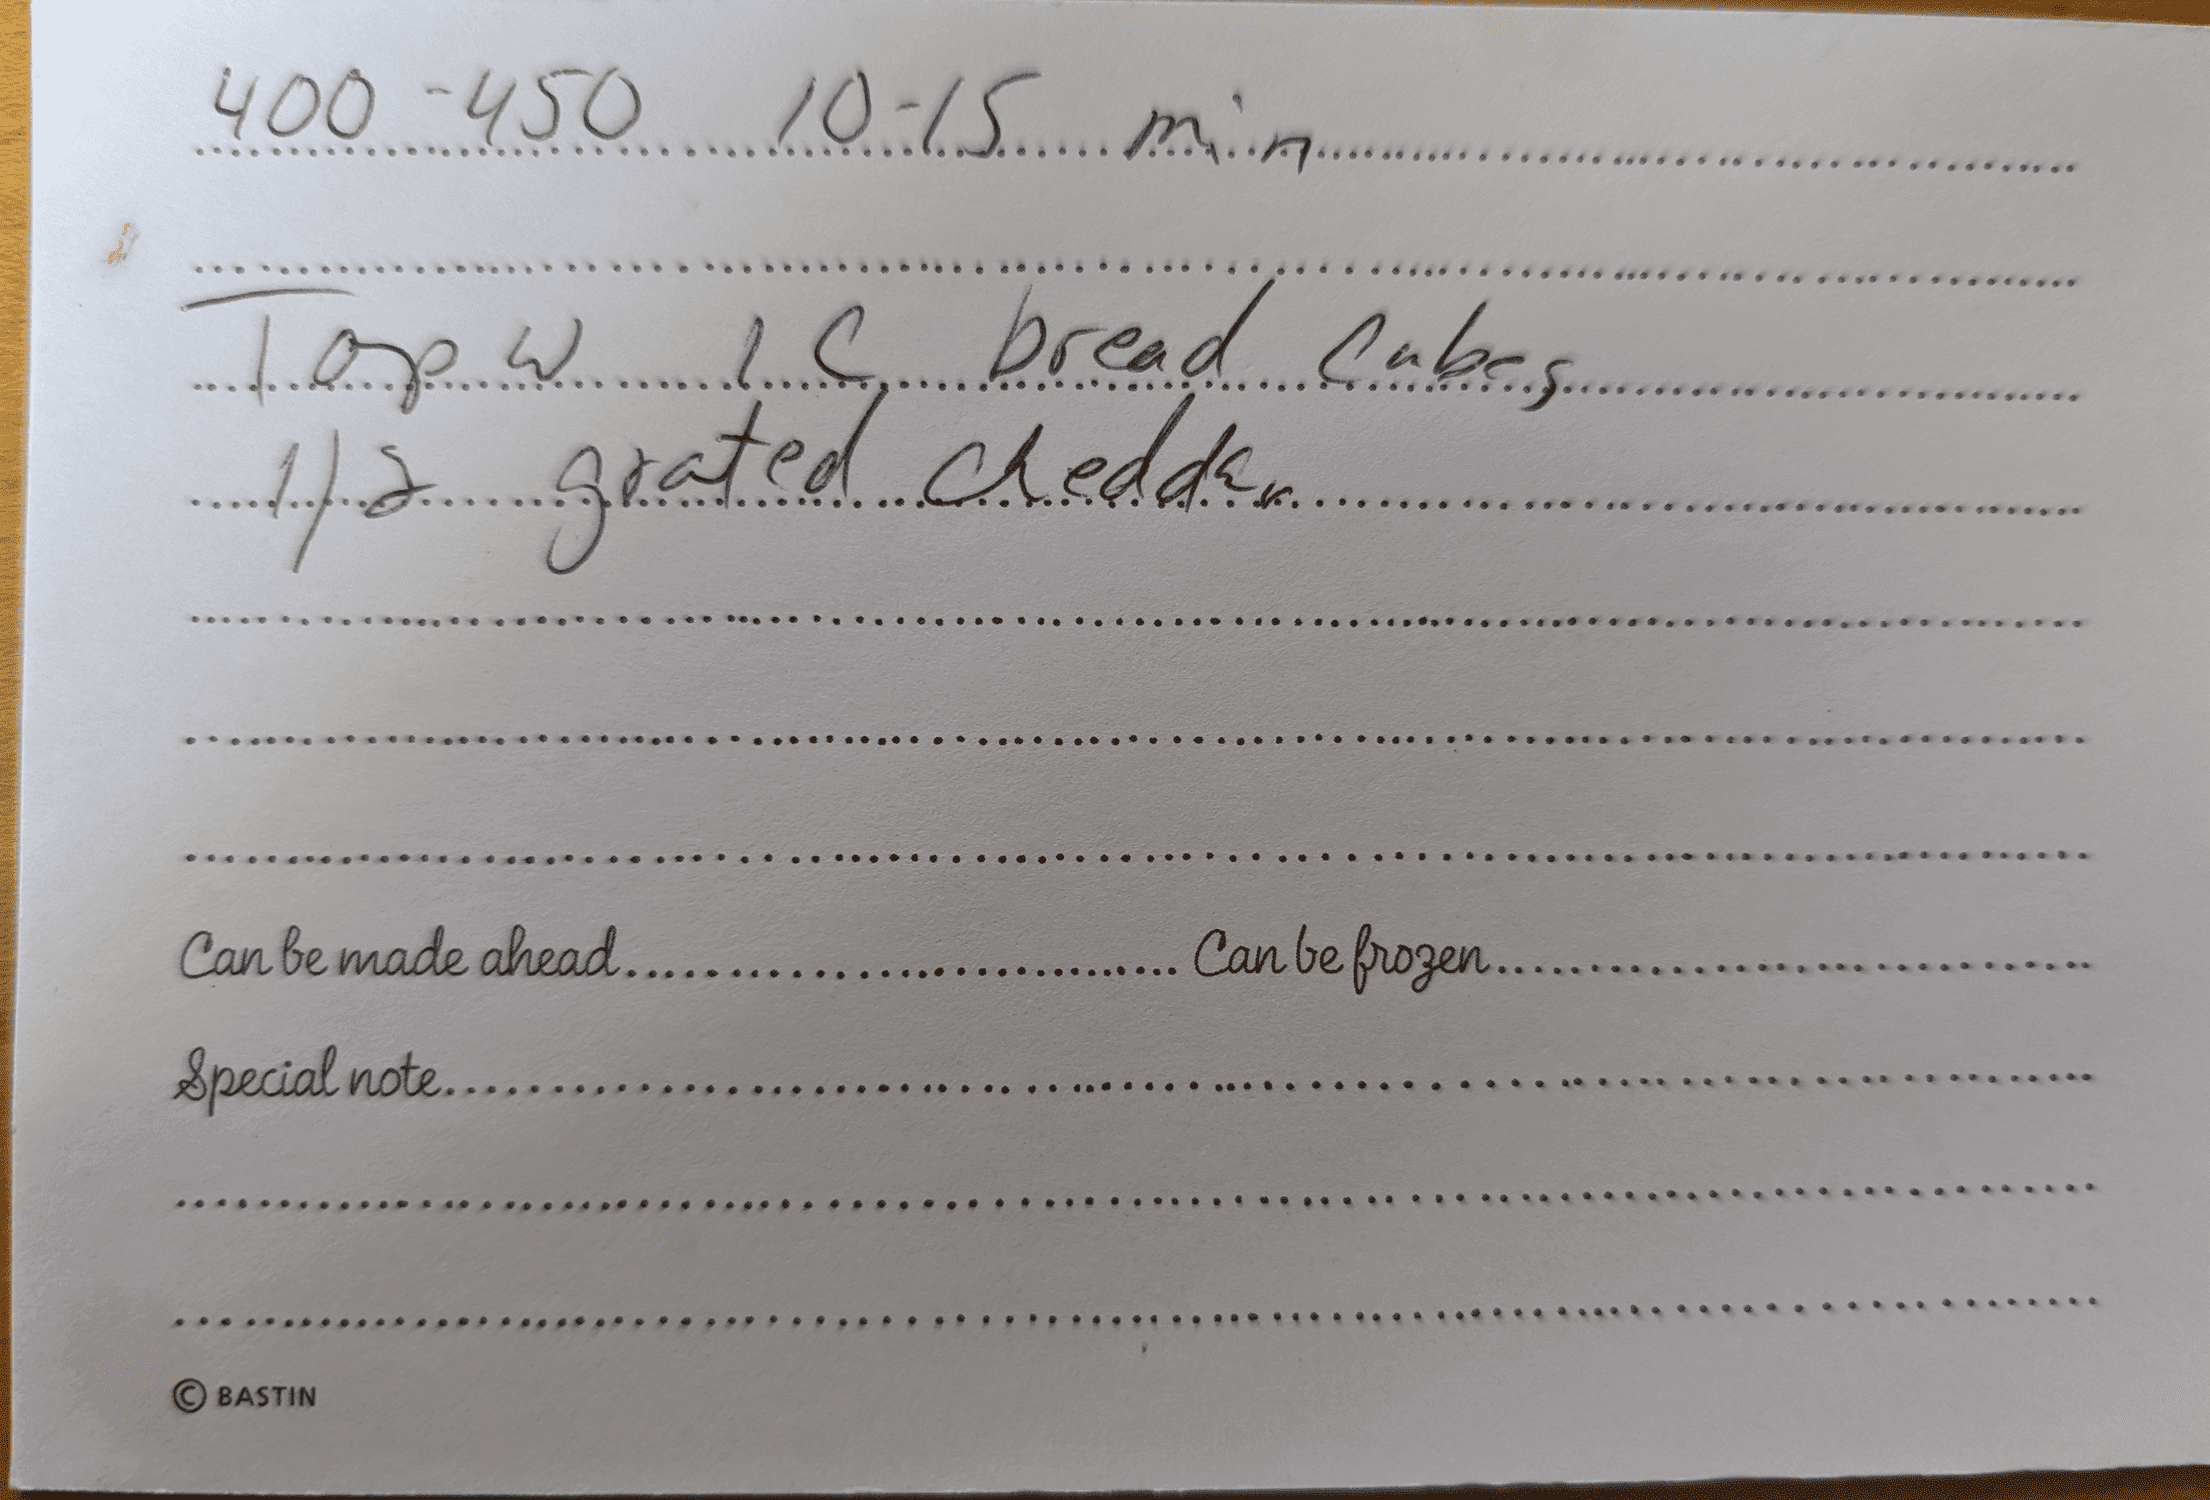 400 - 450 10-15 min
Top w 1 C bread cubes
1/2 grated cheddar
Can be made ahead
Can be frozen
Special note
© BASTIN